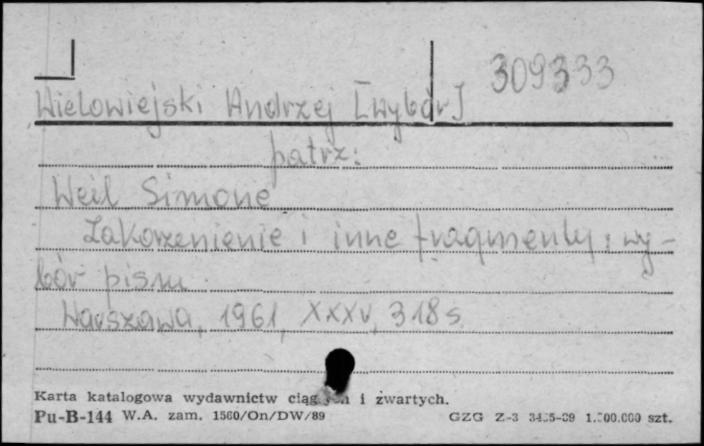 309333
Wielowiejski Andrzej [wybór]
patrz:
Weil Simone
Zakorzenienie i inne fragmenty: wy-
bór pism.
Warszawa, 1961, XXXV, 318 s.
Karta katalogowa wydawnictw i zwartych.
Pu-B-144 W.A. zam. 1560/On/DW/89 GZG Z-3 szt.